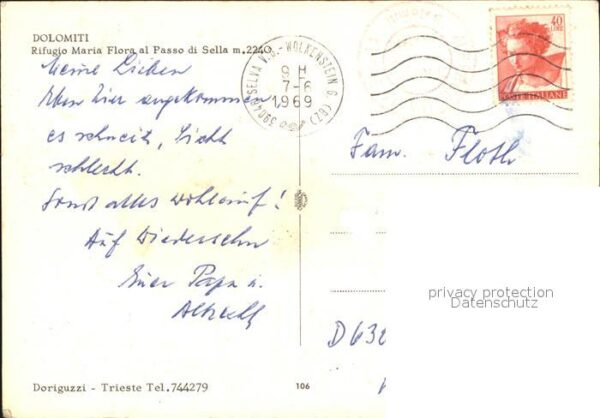 DOLOMITI
Rifugio Maria Flora al Passo di Sella m.2240
Meine Lieben
Eben hier angekommen
es schneit, Sicht
schlecht.
Sonst alles wohlauf!
Auf Wiedersehn
Euer Papa u.
39048 SELVA V.G.-WOLKENSTEIN G. (BZ)
9 H
7-6
1969
40
LIRE
POSTE ITALIANE
Fam. Floth
privacy protection
Datenschutz
D 632
Doriguzzi - Trieste Tel.744279
106